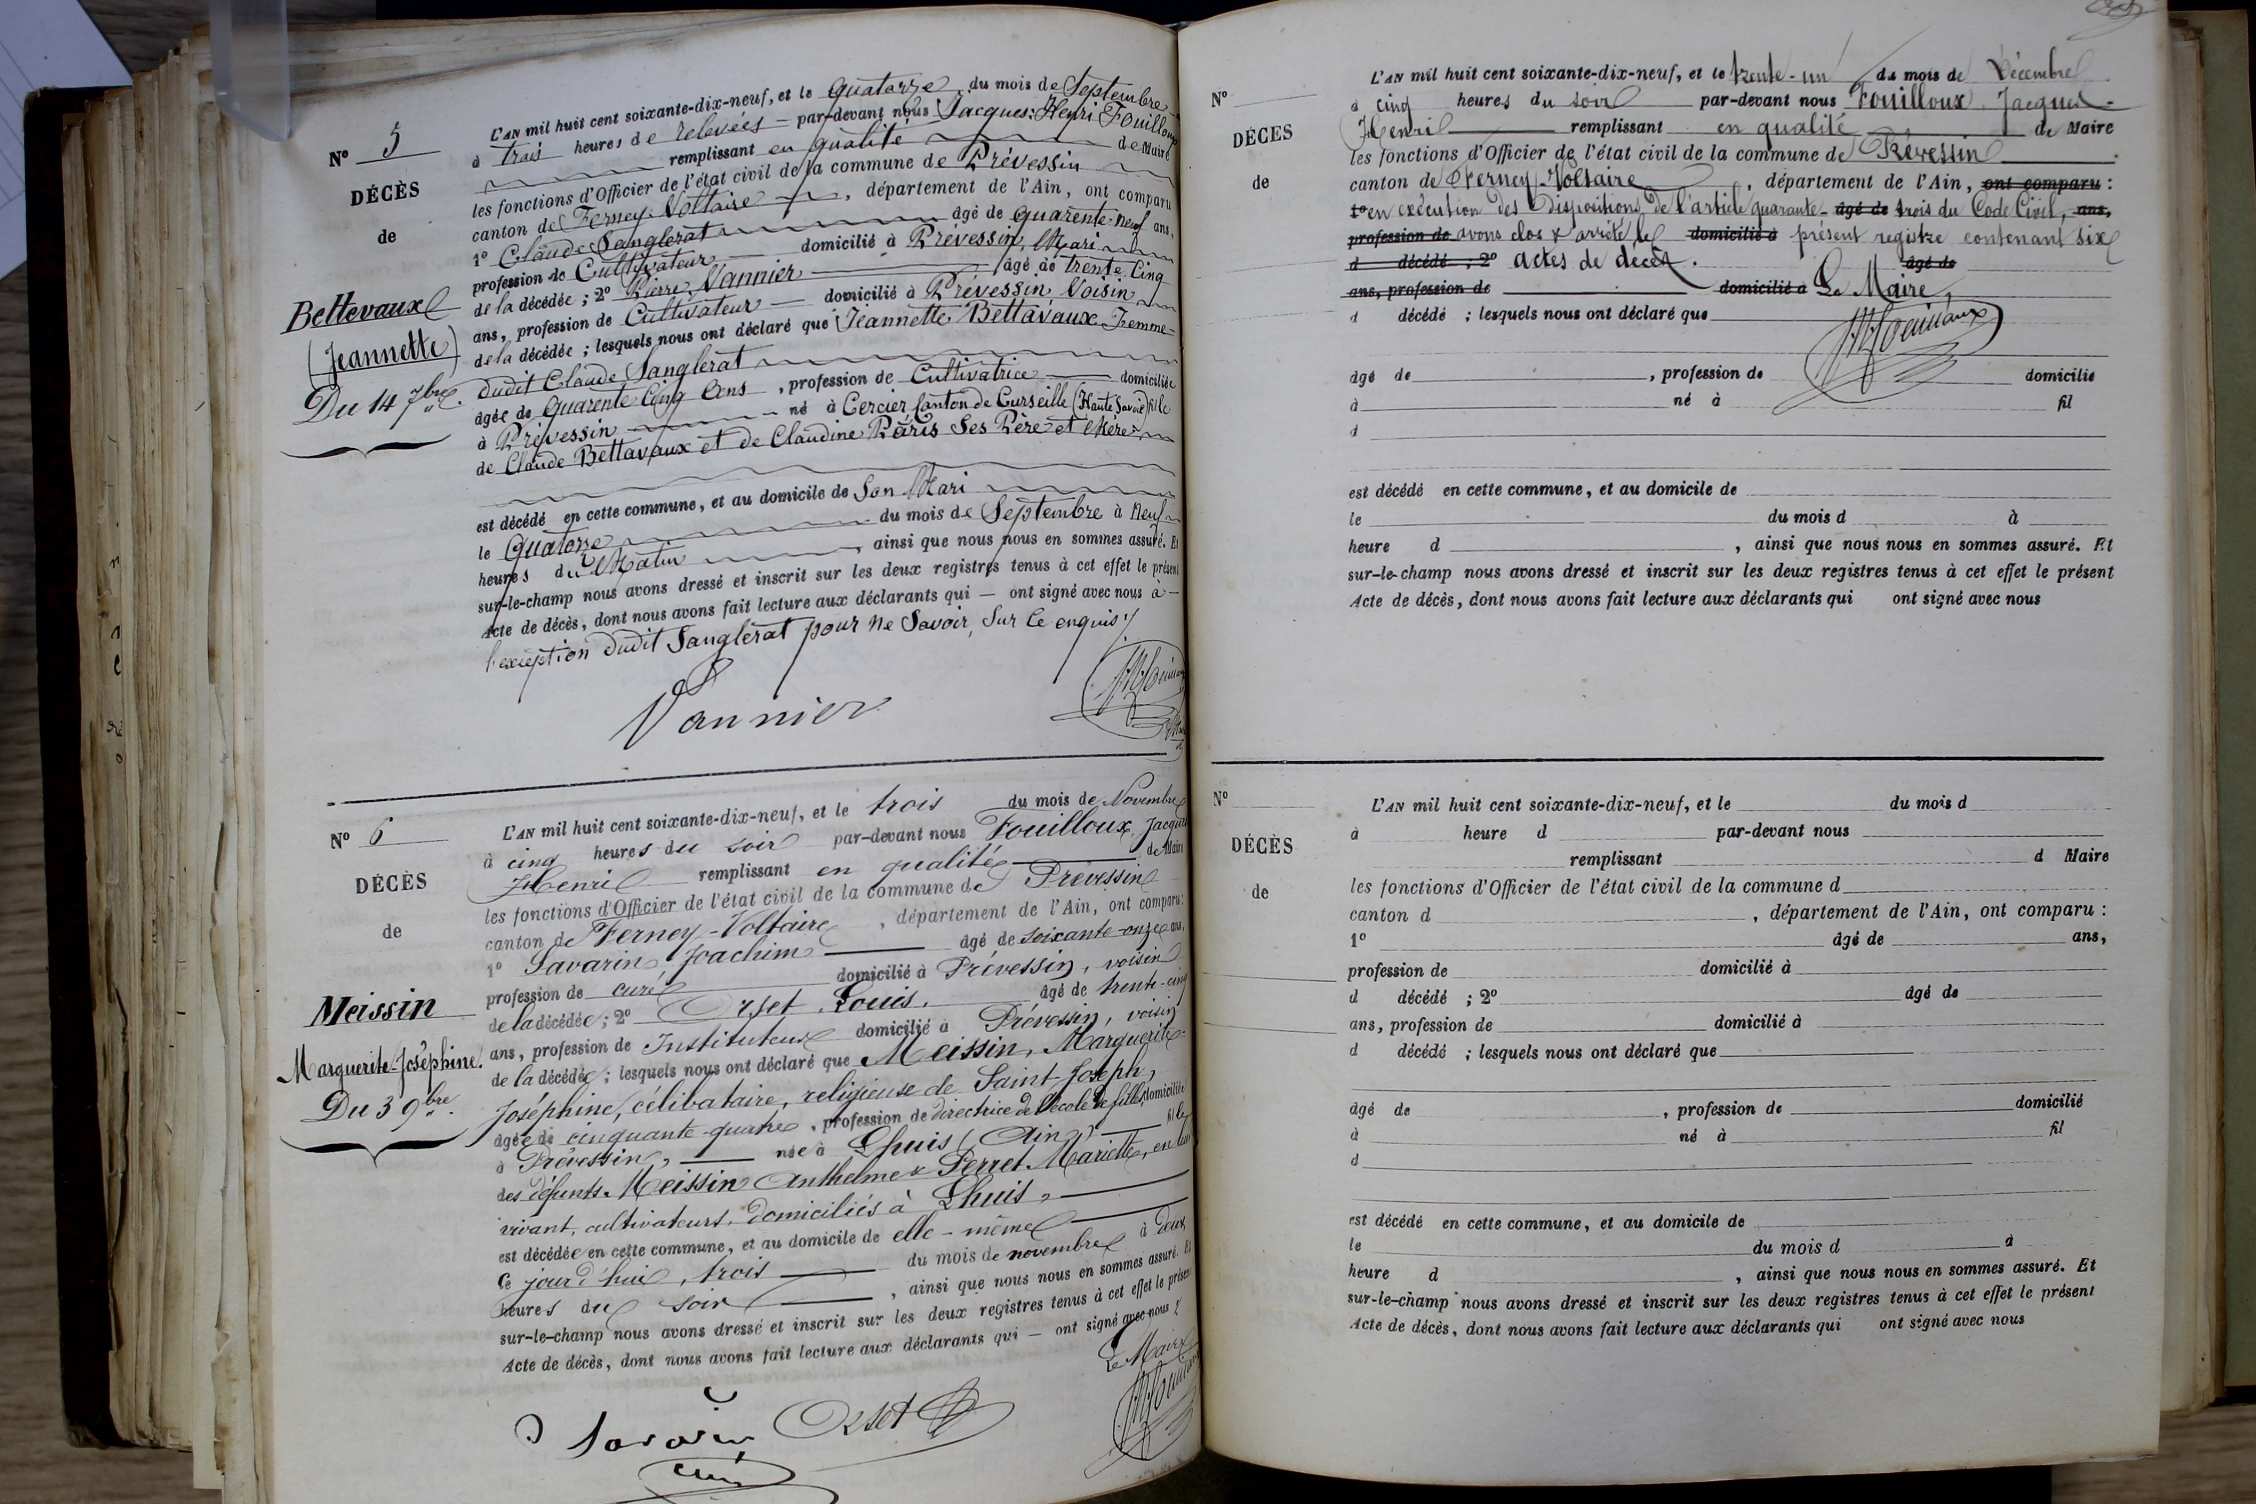 N° 5
DÉCÈS
de
Bettevaux
(Jeannette)
Du 14 7bre.
L'AN mil huit cent soixante-dix-neuf, et le quatorze du mois de Septembre
à trois heures de relevées — par-devant nous Jacques-Henri Fouilloux
remplissant en qualité de Maire
les fonctions d'Officier de l'état civil de la commune de Prévessin
canton de Ferney-Voltaire, département de l'Ain, ont comparu
1° Claude Sanglerat âgé de quarente-neuf ans,
profession de Cultivateur domicilié à Prévessin, Mari
de la décédée ; 2° Pierre Vannier âgé de trente cinq
ans, profession de Cultivateur — domicilié à Prévessin Voisin
de la décédée ; lesquels nous ont déclaré que Jeannette Bettavaux Femme
dudit Claude Sanglerat
âgée de quarente cinq ans, profession de Cultivatrice domiciliée
à Prévessin né à Cercier Canton de Curseille (Haute Savoie) fille
de Claude Bettavaux et de Claudine Pâris Ses Père et Mère
est décédé en cette commune, et au domicile de Son Mari
le Quatorze du mois de Septembre à Neuf
heures du Matin, ainsi que nous nous en sommes assuré. Et
sur-le-champ nous avons dressé et inscrit sur les deux registres tenus à cet effet le présent
Acte de décès, dont nous avons fait lecture aux déclarants qui — ont signé avec nous à
l'exception dudit Sanglerat pour ne Savoir, Sur Ce enquis
Vannier
N° 6
DÉCÈS
de
Meissin
Marguerite-Joséphine.
Du 3 9bre.
L'AN mil huit cent soixante-dix-neuf, et le trois du mois de Novembre
à cinq heures du soir par-devant nous Fouilloux, Jacques
Henri remplissant en qualité de Maire
les fonctions d'Officier de l'état civil de la commune de Prévessin
canton de Ferney-Voltaire, département de l'Ain, ont comparu :
1° Savarin, Joachim âgé de soixante-onze ans,
profession de curé domicilié à Prévessin, voisin
de la décédée ; 2° Orset, Louis, âgé de trente-cinq
ans, profession de Instituteur domicilié à Prévessin, voisin
de la décédée ; lesquels nous ont déclaré que Meissin, Marguerite-
Joséphine, célibataire, religieuse de Saint-Joseph,
âgée de cinquante-quatre, profession de directrice de l'école de filles, domiciliée
à Prévessin, née à Lhuis (Ain) fille
des défunts Meissin Anthelme & Perret Mariette, en leur
vivant, cultivateurs, domiciliés à Lhuis,
est décédée en cette commune, et au domicile de elle-même
Ce jourd'hui, trois du mois de novembre à deux
heures du soir, ainsi que nous nous en sommes assuré. Et
sur-le-champ nous avons dressé et inscrit sur les deux registres tenus à cet effet le présent
Acte de décès, dont nous avons fait lecture aux déclarants qui — ont signé avec nous
Le Maire
Savarin Orset
curé
N°
DÉCES
de
L'AN mil huit cent soixante-dix-neuf, et le trente-un du mois de Décembre
à cinq heures du soir par-devant nous Fouilloux Jacques-
Henri remplissant en qualité de Maire
les fonctions d'Officier de l'état civil de la commune de Prévessin
canton de Ferney-Voltaire, département de l'Ain, ont comparu :
1° en exécution des dispositions de l'article quarante- âgé de trois du Code Civil, ans,
profession de avons clos & arrêté le domicilié à présent registre contenant six
d décédé ; 2° actes de décès. âgé de
ans, profession de domicilié à Le Maire,
d décédé ; lesquels nous ont déclaré que
âgé de , profession de domicilié
à né à fil
d
est décédé en cette commune, et au domicile de
le du mois d à
heure d , ainsi que nous nous en sommes assuré. Et
sur-le-champ nous avons dressé et inscrit sur les deux registres tenus à cet effet le présent
Acte de décès, dont nous avons fait lecture aux déclarants qui ont signé avec nous
N°
DÉCÈS
de
L'AN mil huit cent soixante-dix-neuf, et le du mois d
à heure d par-devant nous
remplissant d Maire
les fonctions d'Officier de l'état civil de la commune d
canton d , département de l'Ain, ont comparu :
1° âgé de ans,
profession de domicilié à
d décédé ; 2° âgé de
ans, profession de domicilié à
d décédé ; lesquels nous ont déclaré que
âgé de , profession de domicilié
à né à fil
d
est décédé en cette commune, et au domicile de
le du mois d à
heure d , ainsi que nous nous en sommes assuré. Et
sur-le-champ nous avons dressé et inscrit sur les deux registres tenus à cet effet le présent
Acte de décès, dont nous avons fait lecture aux déclarants qui ont signé avec nous